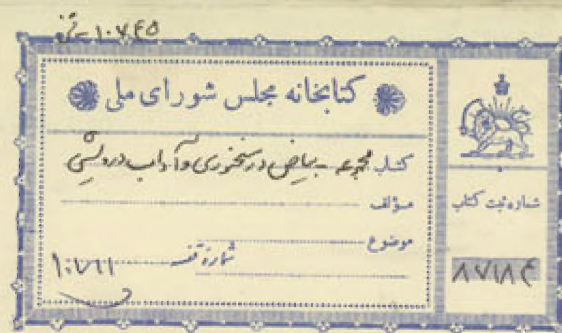 ۱۰۷۴۵
کتابخانه مجلس شورای ملی
کتاب مجموعه - بیاض در سخنوری و آداب درویشی
مؤلف
موضوع
شماره ثبت کتاب
شماره قفسه ۱۰۷۶۱
۸۷۱۸۴